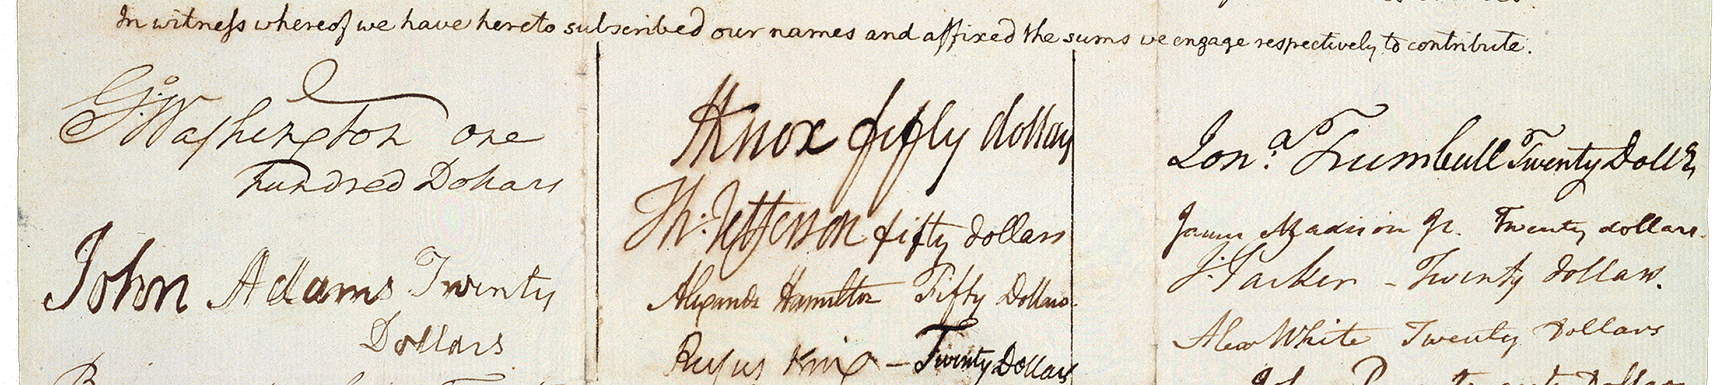 In witness whereof we have hereto subscribed our names and affixed the sums we engage respectively to contribute.
Go: Washington one
hundred Dollars
John Adams Twenty
Dollars
HKnox fifty dollars
Th: Jefferson fifty dollars
Alexander Hamilton Fifty Dollars
Rufus King – Twenty Dollars
Jona. Trumbull Twenty Dolls
James Madison Jr. Twenty dollars.
J: Parker – Twenty dollars.
Alex White Twenty Dollars